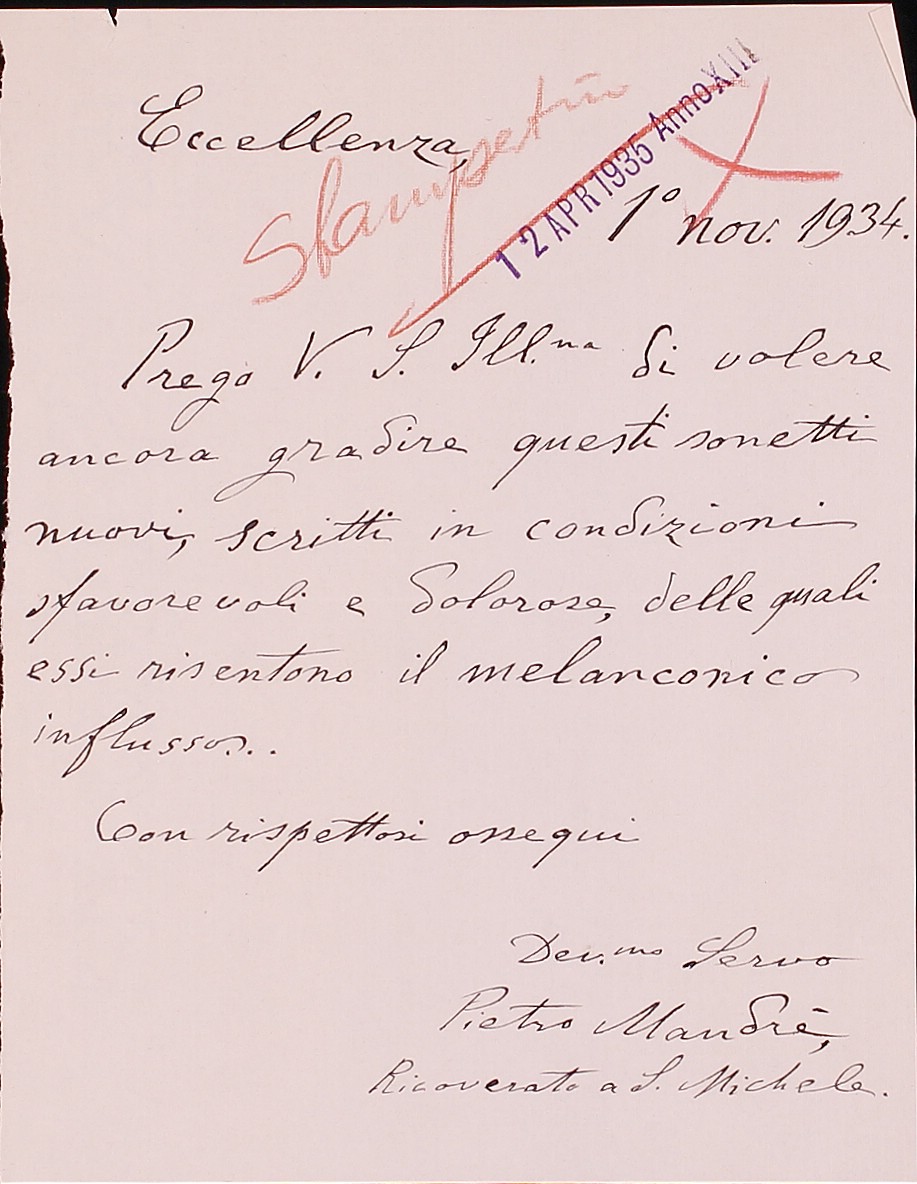 Eccellenza,
Stampetin
12 APR 1935 Anno XIII
1° nov. 1934.
Prego V. S. Ill.ma di volere
ancora gradire questi sonetti
nuovi, scritti in condizioni
sfavorevoli e dolorose, delle quali
essi risentono il melanconico
influsso...
Con rispettosi ossequi
Dev.mo Servo
Pietro Mandrè,
Ricoverato a S. Michele.